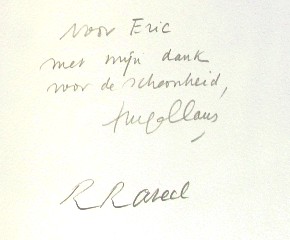 voor Eric
met mijn dank
voor de schoonheid,
Hugo Claus,